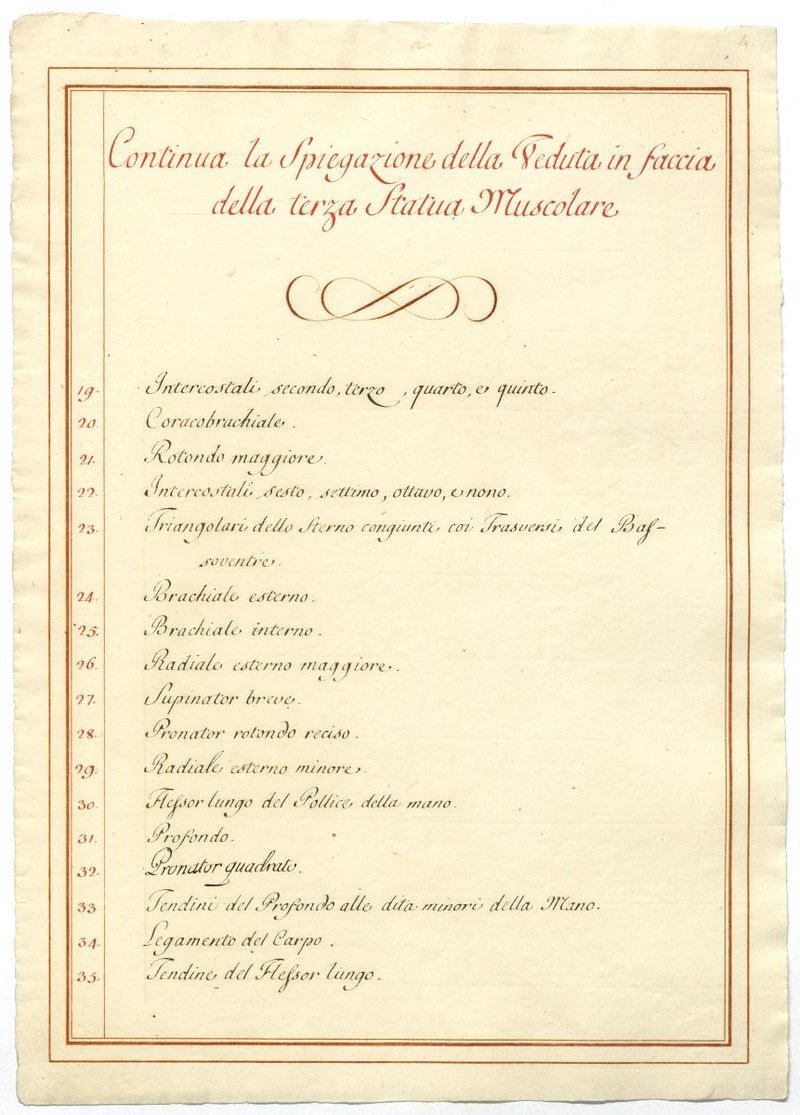 4
Continua la Spiegazione della Veduta in faccia
della terza Statua Muscolare
19. Intercostali secondo, terzo, quarto, e quinto.
20. Coracobrachiale.
21. Rotondo maggiore.
22. Intercostali sesto, settimo, ottavo, e nono.
23. Triangolari dello Sterno congiunti coi Trasversi del Baſ-
soventre.
24. Brachiale esterno.
25. Brachiale interno.
26. Radiale esterno maggiore.
27. Supinator breve.
28. Pronator rotondo reciso.
29. Radiale esterno minore.
30. Fleſsor lungo del Pollice della mano.
31. Profondo.
32. Pronator quadrato.
33 Tendini del Profondo alle dita minori della Mano.
34. Legamento del Carpo.
35. Tendine del Fleſsor lungo.